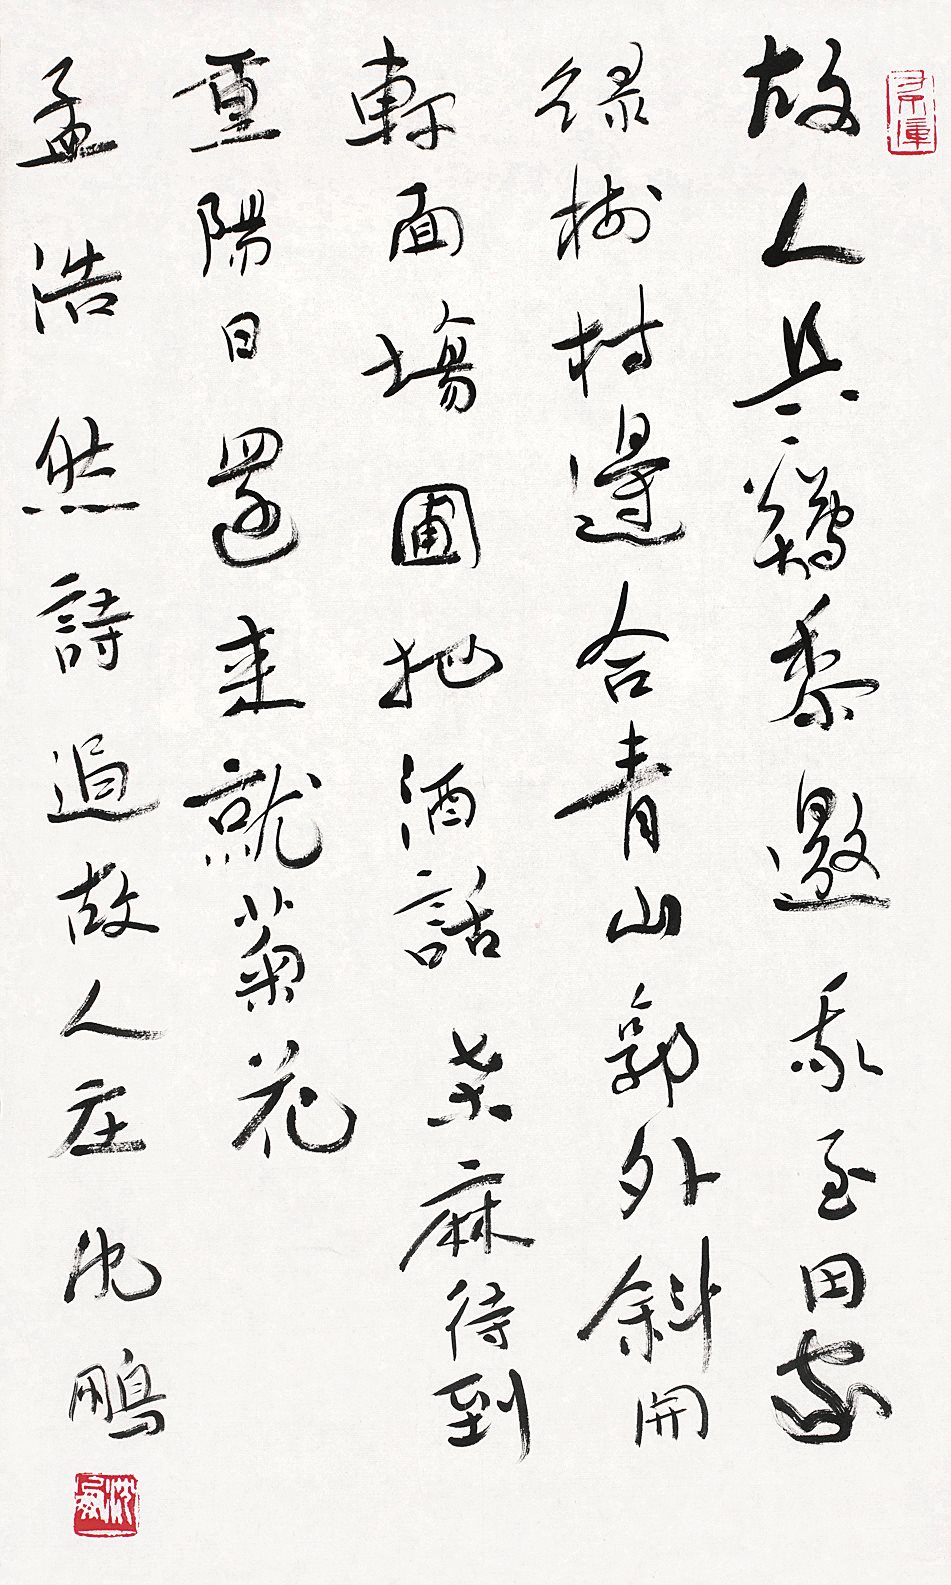 故人具鷄黍邀我至田家
綠樹村邊合青山郭外斜開
軒面場圃把酒話桑麻待到
重陽日還来就菊花
孟浩然詩過故人庄沈鵬
沈鵬